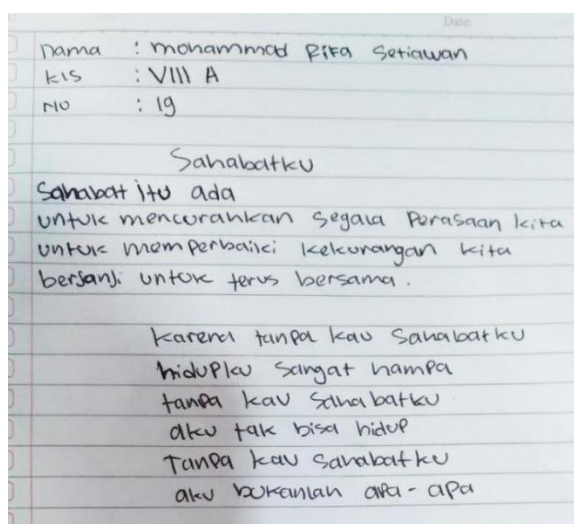 Date:
nama : mohammad Rifa Setiawan
kls : VIII A
NO : 19
Sahabatku
Sahabat itu ada
untuk mencurahkan segala Perasaan kita
untuk memperbaiki kekurangan kita
bersanji untuk terus bersama.
karena tanpa kau Sahabatku
hidupku sangat hampa
tanpa kau Sahabatku
aku tak bisa hidup
Tanpa kau Sahabatku
aku bukanlah apa-apa